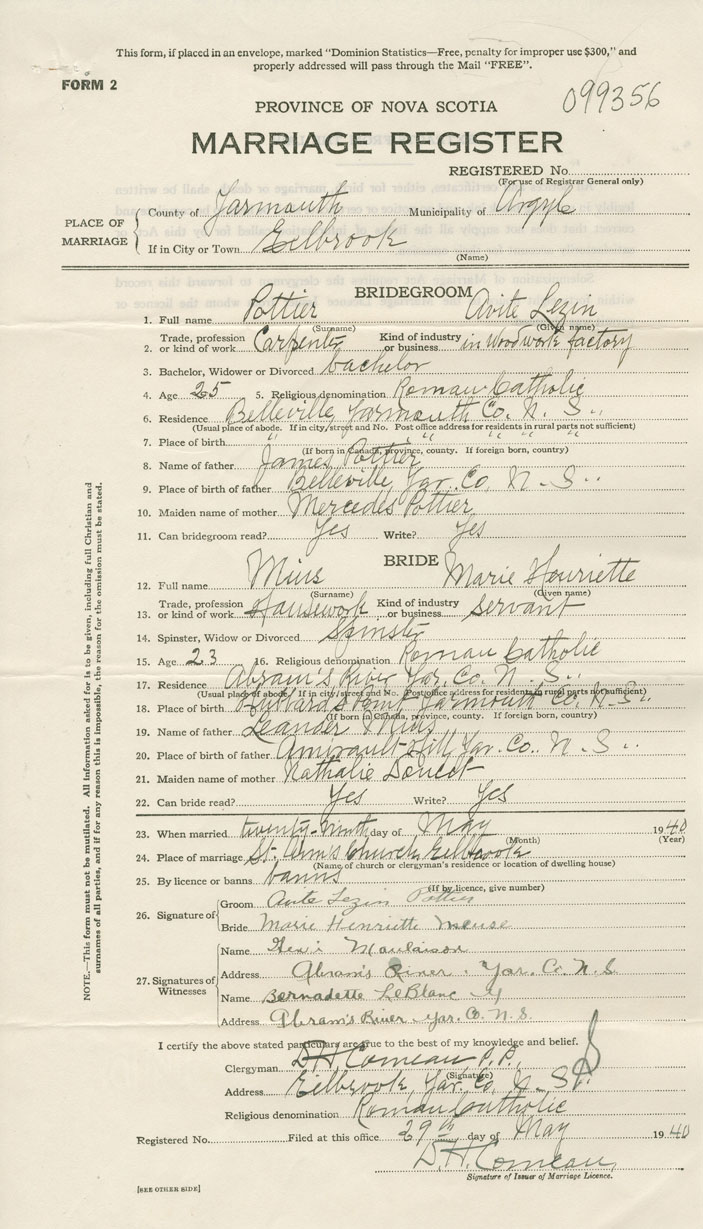 This form, if placed in an envelope, marked "Dominion Statistics—Free, penalty for improper use $300," and
properly addressed will pass through the Mail "FREE".
FORM 2
099356
PROVINCE OF NOVA SCOTIA
MARRIAGE REGISTER
REGISTERED No.
(For use of Registrar General only)
PLACE OF MARRIAGE
County of Yarmouth Municipality of Argyle
If in City or Town Eelbrook
(Name)
BRIDEGROOM
1. Full name Pottier Avite Lezin
(Surname) (Given name)
2. Trade, profession or kind of work Carpenter Kind of industry or business in Woodwork factory
3. Bachelor, Widower or Divorced bachelor
4. Age 25 5. Religious denomination Roman Catholic
6. Residence Belleville, Yarmouth Co. N. S.
(Usual place of abode. If in city/street and No. Post office address for residents in rural parts not sufficient)
7. Place of birth " " " " "
(If born in Canada, province, county. If foreign born, country)
8. Name of father James Pottier
9. Place of birth of father Belleville, Yar. Co. N. S.
10. Maiden name of mother Mercedes Pottier
11. Can bridegroom read? Yes Write? Yes
BRIDE
12. Full name Mius Marie Henriette
(Surname) (Given name)
13. Trade, profession or kind of work Housework Kind of industry or business Servant
14. Spinster, Widow or Divorced Spinster
15. Age 23 16. Religious denomination Roman Catholic
17. Residence Abram's River Yar. Co. N. S.
(Usual place of abode. If in city/street and No. Post office address for residents in rural parts not sufficient)
18. Place of birth Hubbard's Point Yarmouth Co. N. S.
(If born in Canada, province, county. If foreign born, country)
19. Name of father Leander Mius
20. Place of birth of father Amirault Hill, Yar. Co. N. S.
21. Maiden name of mother Nathalie Doucet
22. Can bride read? Yes Write? Yes
23. When married twenty-ninth day of May 1940
(Month) (Year)
24. Place of marriage St. Ann's Church, Eelbrook
(Name of church or clergyman's residence or location of dwelling house)
25. By licence or banns banns
(If by licence, give number)
26. Signature of
Groom Avite Lezin Pottier
Bride Marie Henriette Meuse
27. Signatures of Witnesses
Name Moulaison
Address Abram's River. Yar. Co. N. S.
Name Bernadette LeBlanc
Address Abram's River Yar. Co. N. S.
I certify the above stated particulars are true to the best of my knowledge and belief.
Clergyman D. H. Comeau, P.P.,
(Signature)
Address Eelbrook, Yar. Co. N. S.
Religious denomination Roman Catholic
Registered No. Filed at this office 29th day of May 1940
D. H. Comeau
Signature of Issuer of Marriage Licence.
[SEE OTHER SIDE]
NOTE.—This form must not be mutilated. All information asked for is to be given, including full Christian and
surnames of all parties, and if for any reason this is impossible, the reason for the omission must be stated.